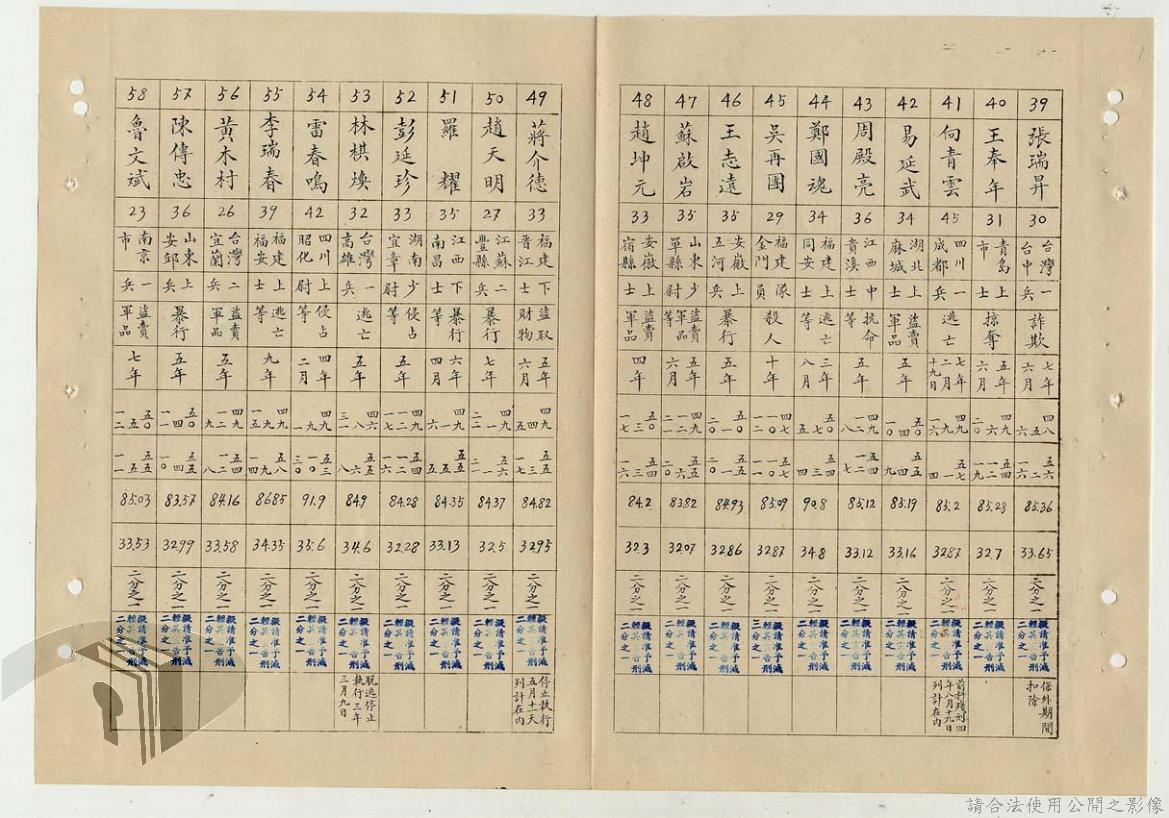 39 張瑞昇 30 台灣台中 一兵 詐欺 七年六月 四八五六 五六二六 85.36 33.65 二分之一 擬請准予減輕其宣告刑二分之一 保外期間扣除
40 王奉年 31 青島市 上士 掠奪 五年六月 四九六二〇 五四一二一九 85.23 32.7 二分之一 擬請准予減輕其宣告刑二分之一
41 向青雲 45 四川成都 一兵 逃亡 七年二月十九日 四九九一六 五七一四 85.2 32.87 二分之一 擬請准予減輕其宣告刑二分之一 前科殘刑四年八月十九日列計在內
42 易延武 34 湖北麻城 上士 盜賣軍品 五年 五〇四一〇 85.19 33.16 二分之一 擬請准予減輕其宣告刑二分之一
43 周殿亮 36 江西貴溪 中士 抗命等 五年 四九一二八 五四一二七 85.12 33.12 二分之一 擬請准予減輕其宣告刑二分之一
44 鄭國魂 34 福建同安 上士 逃亡等 三年八月 五〇七五 五四三四 90.8 34.8 二分之一 擬請准予減輕其宣告刑二分之一
45 吳再團 29 福建金門 隊員 殺人 十年 85.09 32.87 二分之一 擬請准予減輕其宣告刑三分之一
46 王志遠 35 安徽五河 上兵 暴行 五年 五〇一二〇 五五一二〇 84.93 32.86 二分之一 擬請准予減輕其宣告刑二分之一
47 蘇啟岩 35 山東單縣 少尉 盜賣軍品等 五年六月 四九一二二一 五五六二〇 83.82 32.07 二分之一 擬請准予減輕其宣告刑二分之一
48 趙坤元 33 安徽宿縣 上士 盜賣軍品 四年 五〇三一七 五四三一六 84.2 32.3 二分之一 擬請准予減輕其宣告刑二分之一
49 蔣介德 33 福建晉江 下士 盜取財物 五年六月 四九四五 84.82 32.95 二分之一 擬請准予減輕其宣告刑二分之一 停止執行五月十一天列計在內
50 趙天明 27 江蘇豐縣 二兵 暴行 七年 四九一二二 五六一二 84.37 32.5 二分之一 擬請准予減輕其宣告刑二分之一
51 羅耀 35 江西南昌 下士 暴行 六年四月 四九一六 五五五五 84.35 33.13 二分之一 擬請准予減輕其宣告刑二分之一
52 彭延珍 33 湖南宜章 少尉 侵占等 五年 四九一二一七 五四一二一六 84.28 32.28 二分之一 擬請准予減輕其宣告刑二分之一
53 林棋煥 32 台灣高雄 一兵 逃亡 五年 四六八三一 五五六八 84.9 34.6 二分之一 擬請准予減輕其宣告刑二分之一 脫逃停止執行三年三月九日
54 雷春鳴 42 四川昭化 上尉 侵占等 四年二月 四九九一 五三一〇三〇 91.9 35.6 二分之一 擬請准予減輕其宣告刑二分之一
55 李瑞春 39 福建福安 上士 逃亡等 九年 四九九一五 五八九一四 86.85 34.35 二分之一 擬請准予減輕其宣告刑二分之一
56 黃木村 26 台灣宜蘭 二兵 盜賣軍品 五年 四九一二九 五四一二八 84.16 33.58 二分之一 擬請准予減輕其宣告刑二分之一
57 陳傳忠 36 山東安邱 上兵 暴行 五年 五〇四一一 五五四一〇 83.57 32.99 二分之一 擬請准予減輕其宣告刑二分之一
58 魯文斌 23 南京市 一兵 盜賣軍品 七年 五〇五一二 五五五一一 85.03 33.53 二分之一 擬請准予減輕其宣告刑二分之一
請合法使用公開之影像